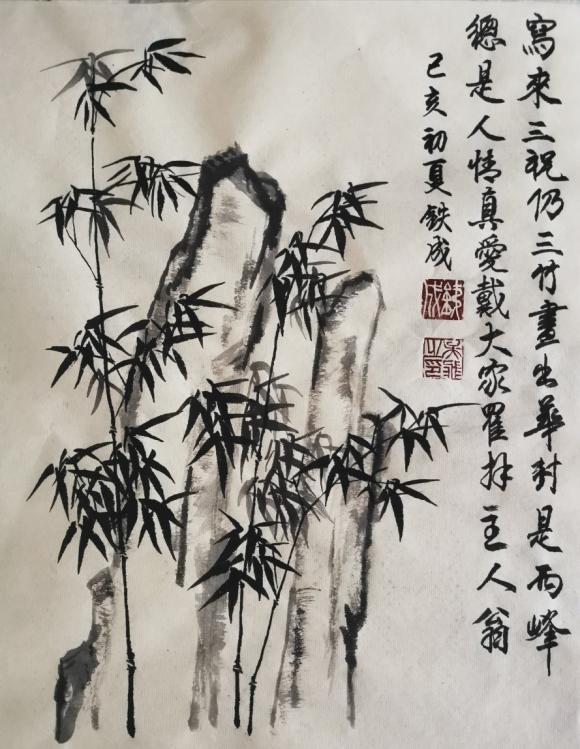 寫來三祝仍三竹畫出華封是两峰
總是人情真愛戴大家羅拜主人翁
己亥初夏鉄成
鉄成